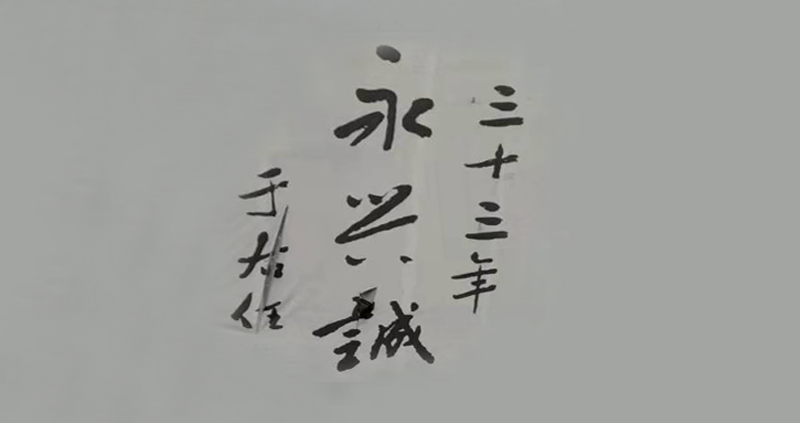 三十三年
永兴誠
于右任